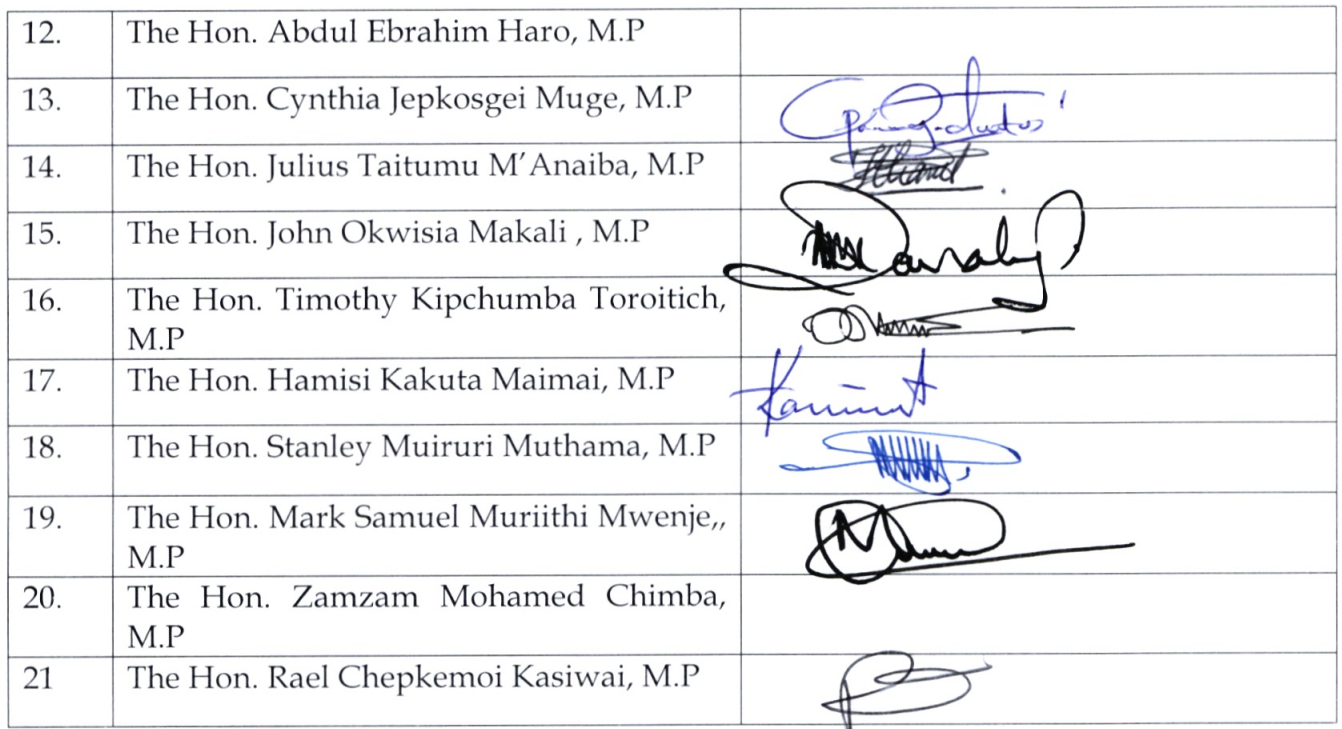 12. The Hon. Abdul Ebrahim Haro, M.P
13. The Hon. Cynthia Jepkosgei Muge, M.P
14. The Hon. Julius Taitumu M'Anaiba, M.P
15. The Hon. John Okwisia Makali , M.P
16. The Hon. Timothy Kipchumba Toroitich,
M.P
17. The Hon. Hamisi Kakuta Maimai, M.P
18. The Hon. Stanley Muiruri Muthama, M.P
19. The Hon. Mark Samuel Muriithi Mwenje,,
M.P
20. The Hon. Zamzam Mohamed Chimba,
M.P
21 The Hon. Rael Chepkemoi Kasiwai, M.P